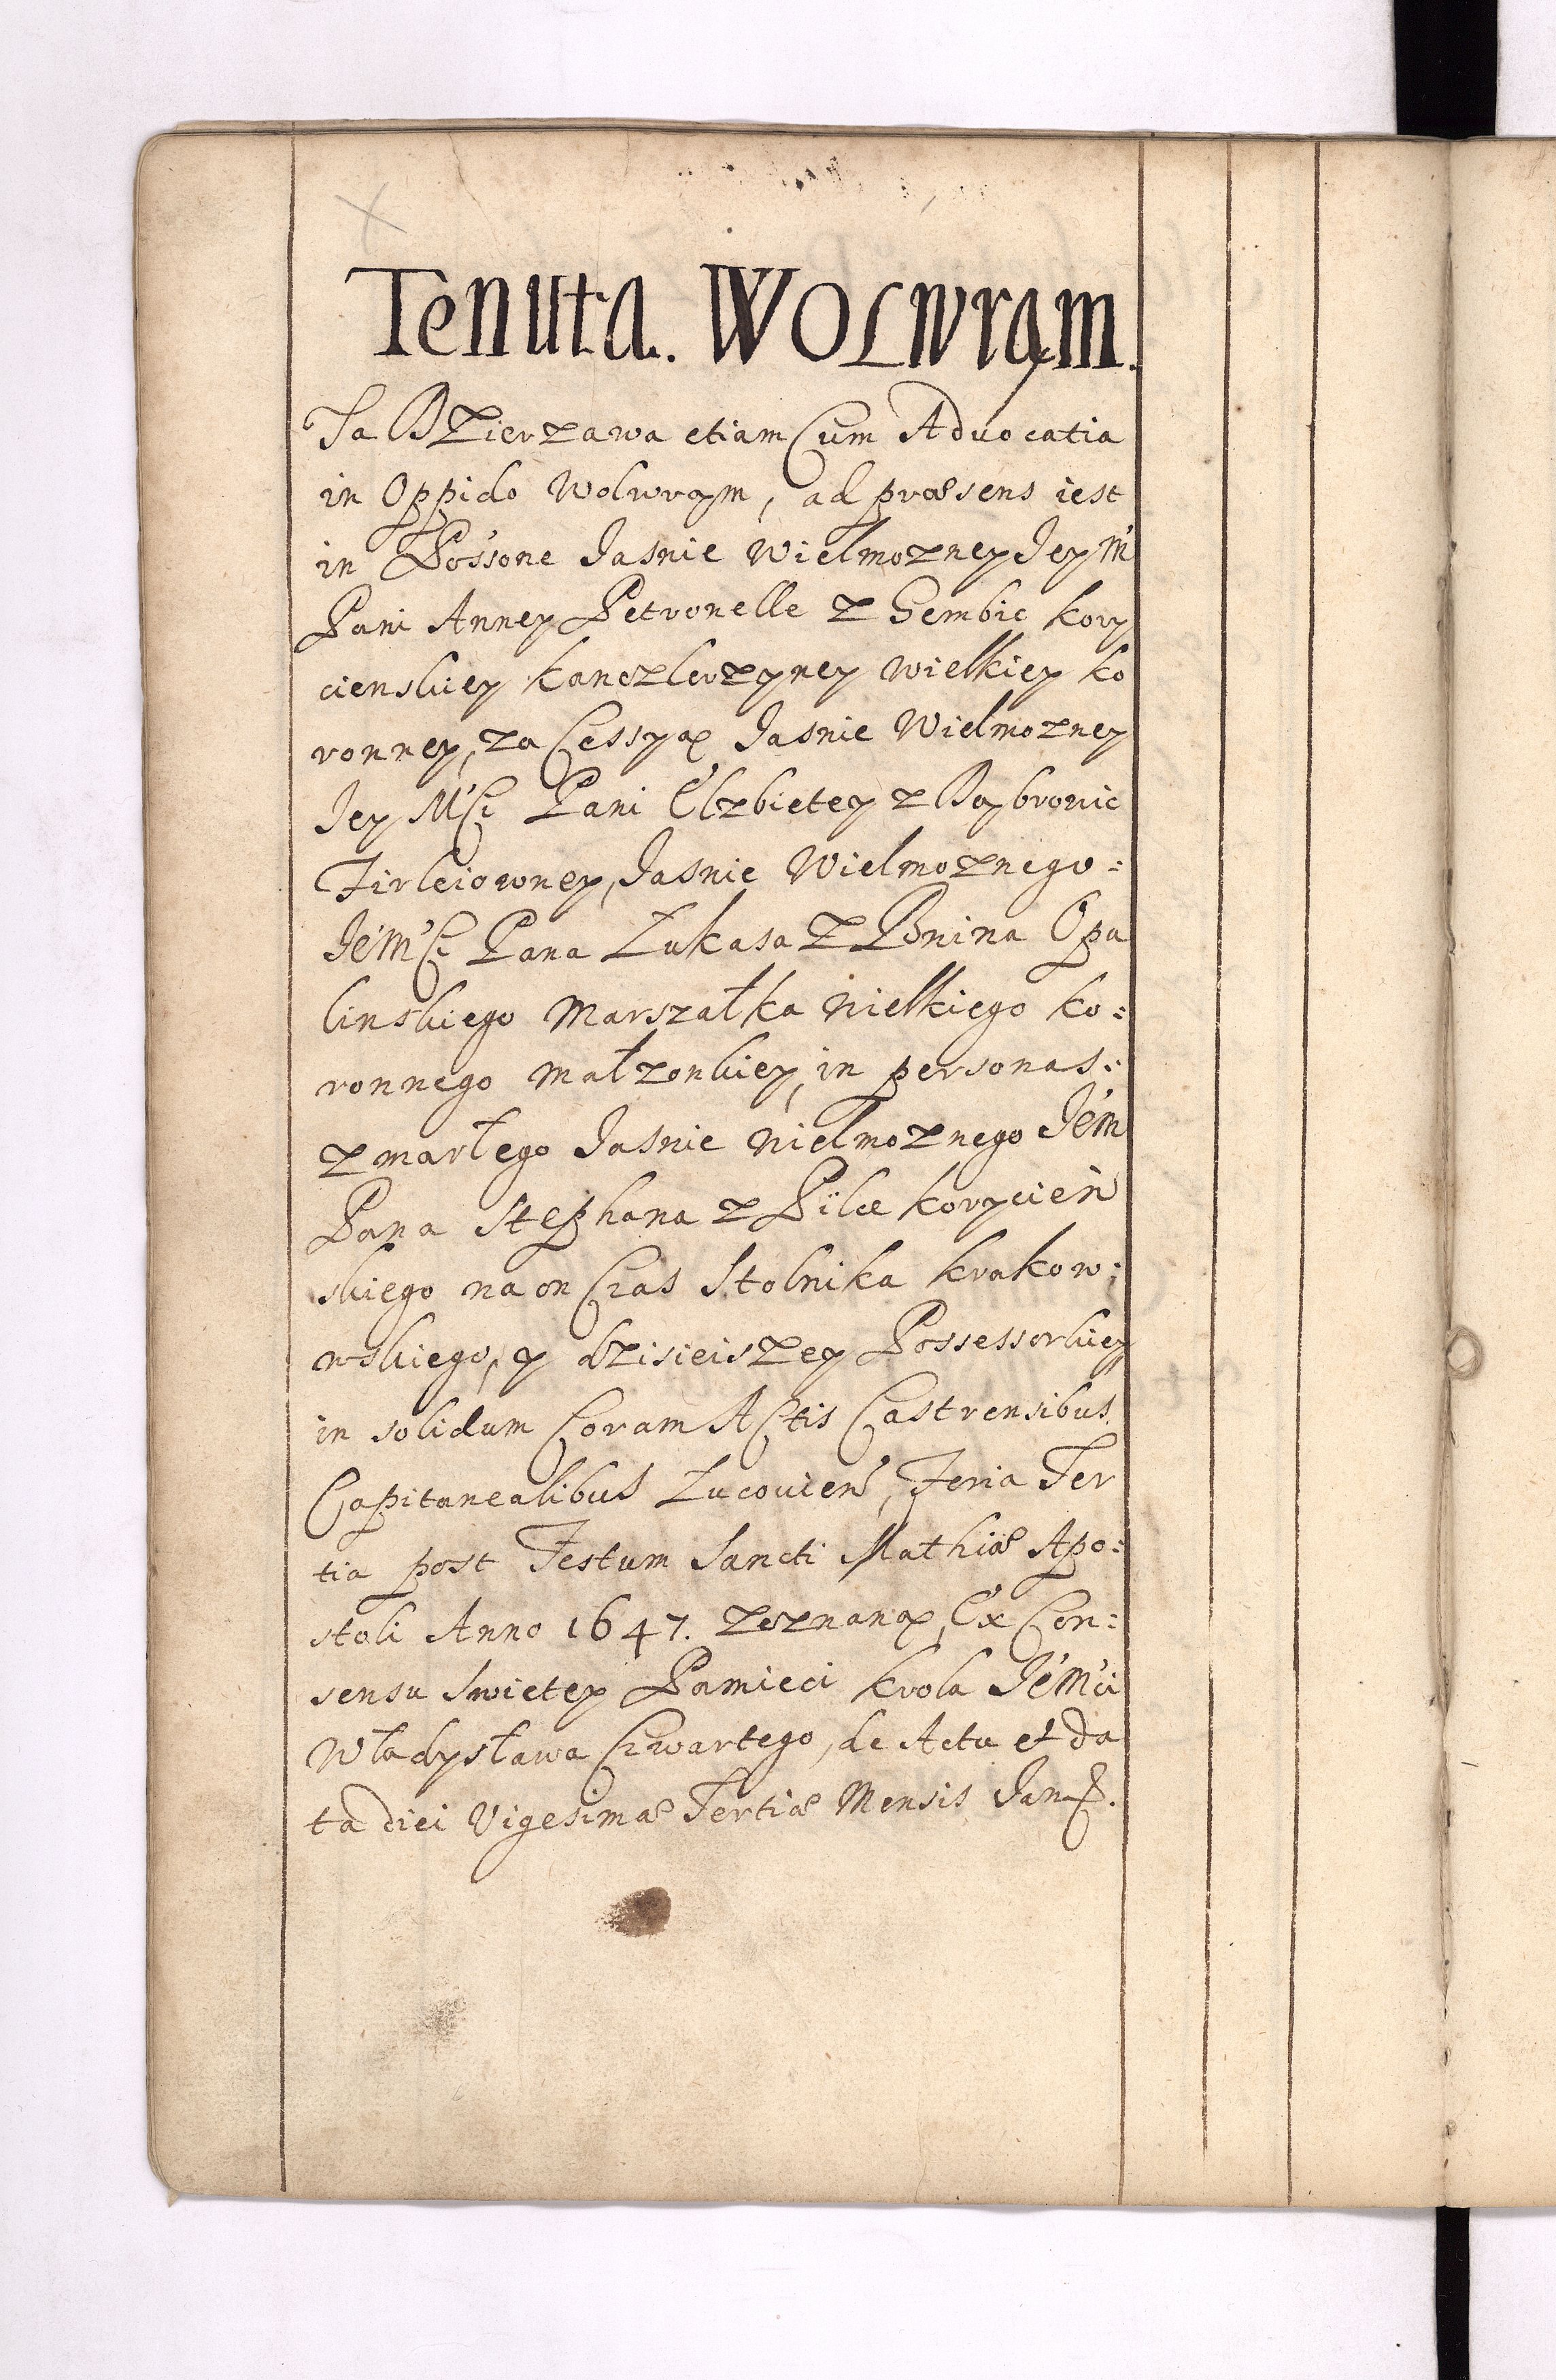 Tenuta. Wolwrąm.
Ta Dzierzawa etiam Cum Advocatia
in Oppido Wolwrąm, ad præsens iest
in Possone Jasnie Wielmozney Jey M
Pani Anney Petronelle z Gembic kory
cienskiey kanczlerzyney wielkiey ko
ronney, za Cessyą Jasnie Wielmozney
Jey MCi Pani Elzbietey z Dąbrovic
Firleiowney, Jasnie Wielmoznego:
JeMCi Pana Łukasa z Bnina Opa
linskiego Marszałka wielkiego ko:
ronnego małzonkiey, in personas:
zmarłego Jasnie wielmoznego JeM
Pana Stephana z Pilce korycień
skiego na on Czas Stolnika krakow:
wskiego, y dzisieiszey Possessorkiey
in solidum Coram Actis Castrensibus
Capitanealibus Lucovień, Feria Ter
tia post Festum Sancti Mathiæ Apo:
stoli Anno 1647. zeznaną, Ex Con:
sensu Swietey Pamieci krola JeMci
Władysława Czwartego, de Actu et da
ta diei Vigesimæ Tertiæ Mensis